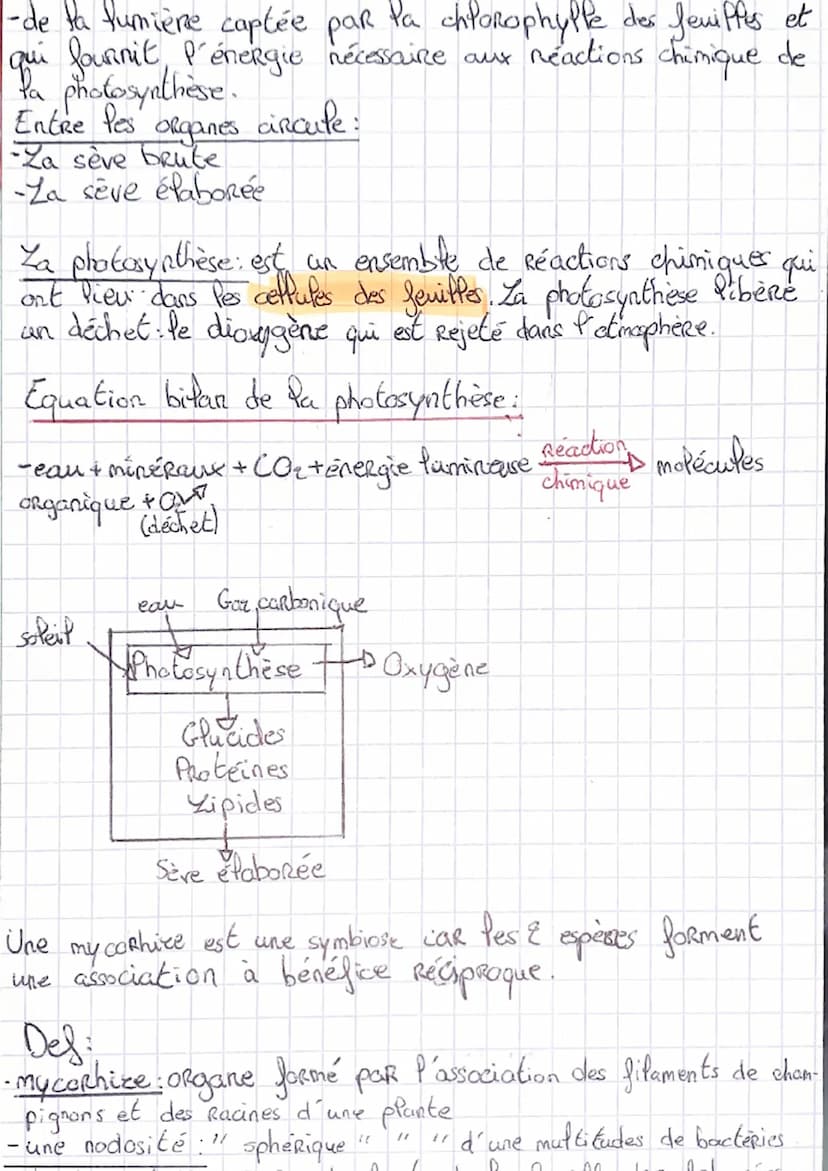 -de la lumière captée par la chlorophylle des feuilles et
qui fournit l'énergie nécessaire aux réactions chimique de
la photosynthèse.
Entre les organes circule :
-La sève brute
-La sève élaborée
La photosynthèse : est un ensemble de réactions chimiques qui
ont lieu dans les cellules des feuilles. La photosynthèse libère
un déchet : le dioxygène qui est rejeté dans l'atmosphère.
Equation bilan de la photosynthèse :
-eau + minéraux + CO2 + énergie lumineuse Réaction chimique molécules
organique +
(déchet)
eau Gaz carbonique
soleil
Photosynthèse Oxygène
Glucides
Protéines
Lipides
Sève élaborée
Une mycorhize est une symbiose car les 2 espèces forment
une association à bénéfice réciproque.
Def :
-mycorhize : organe formé par l'association des filaments de cham-
pignons et des racines d'une plante
-une nodosité : " sphérique " " " d'une multitudes de bactéries